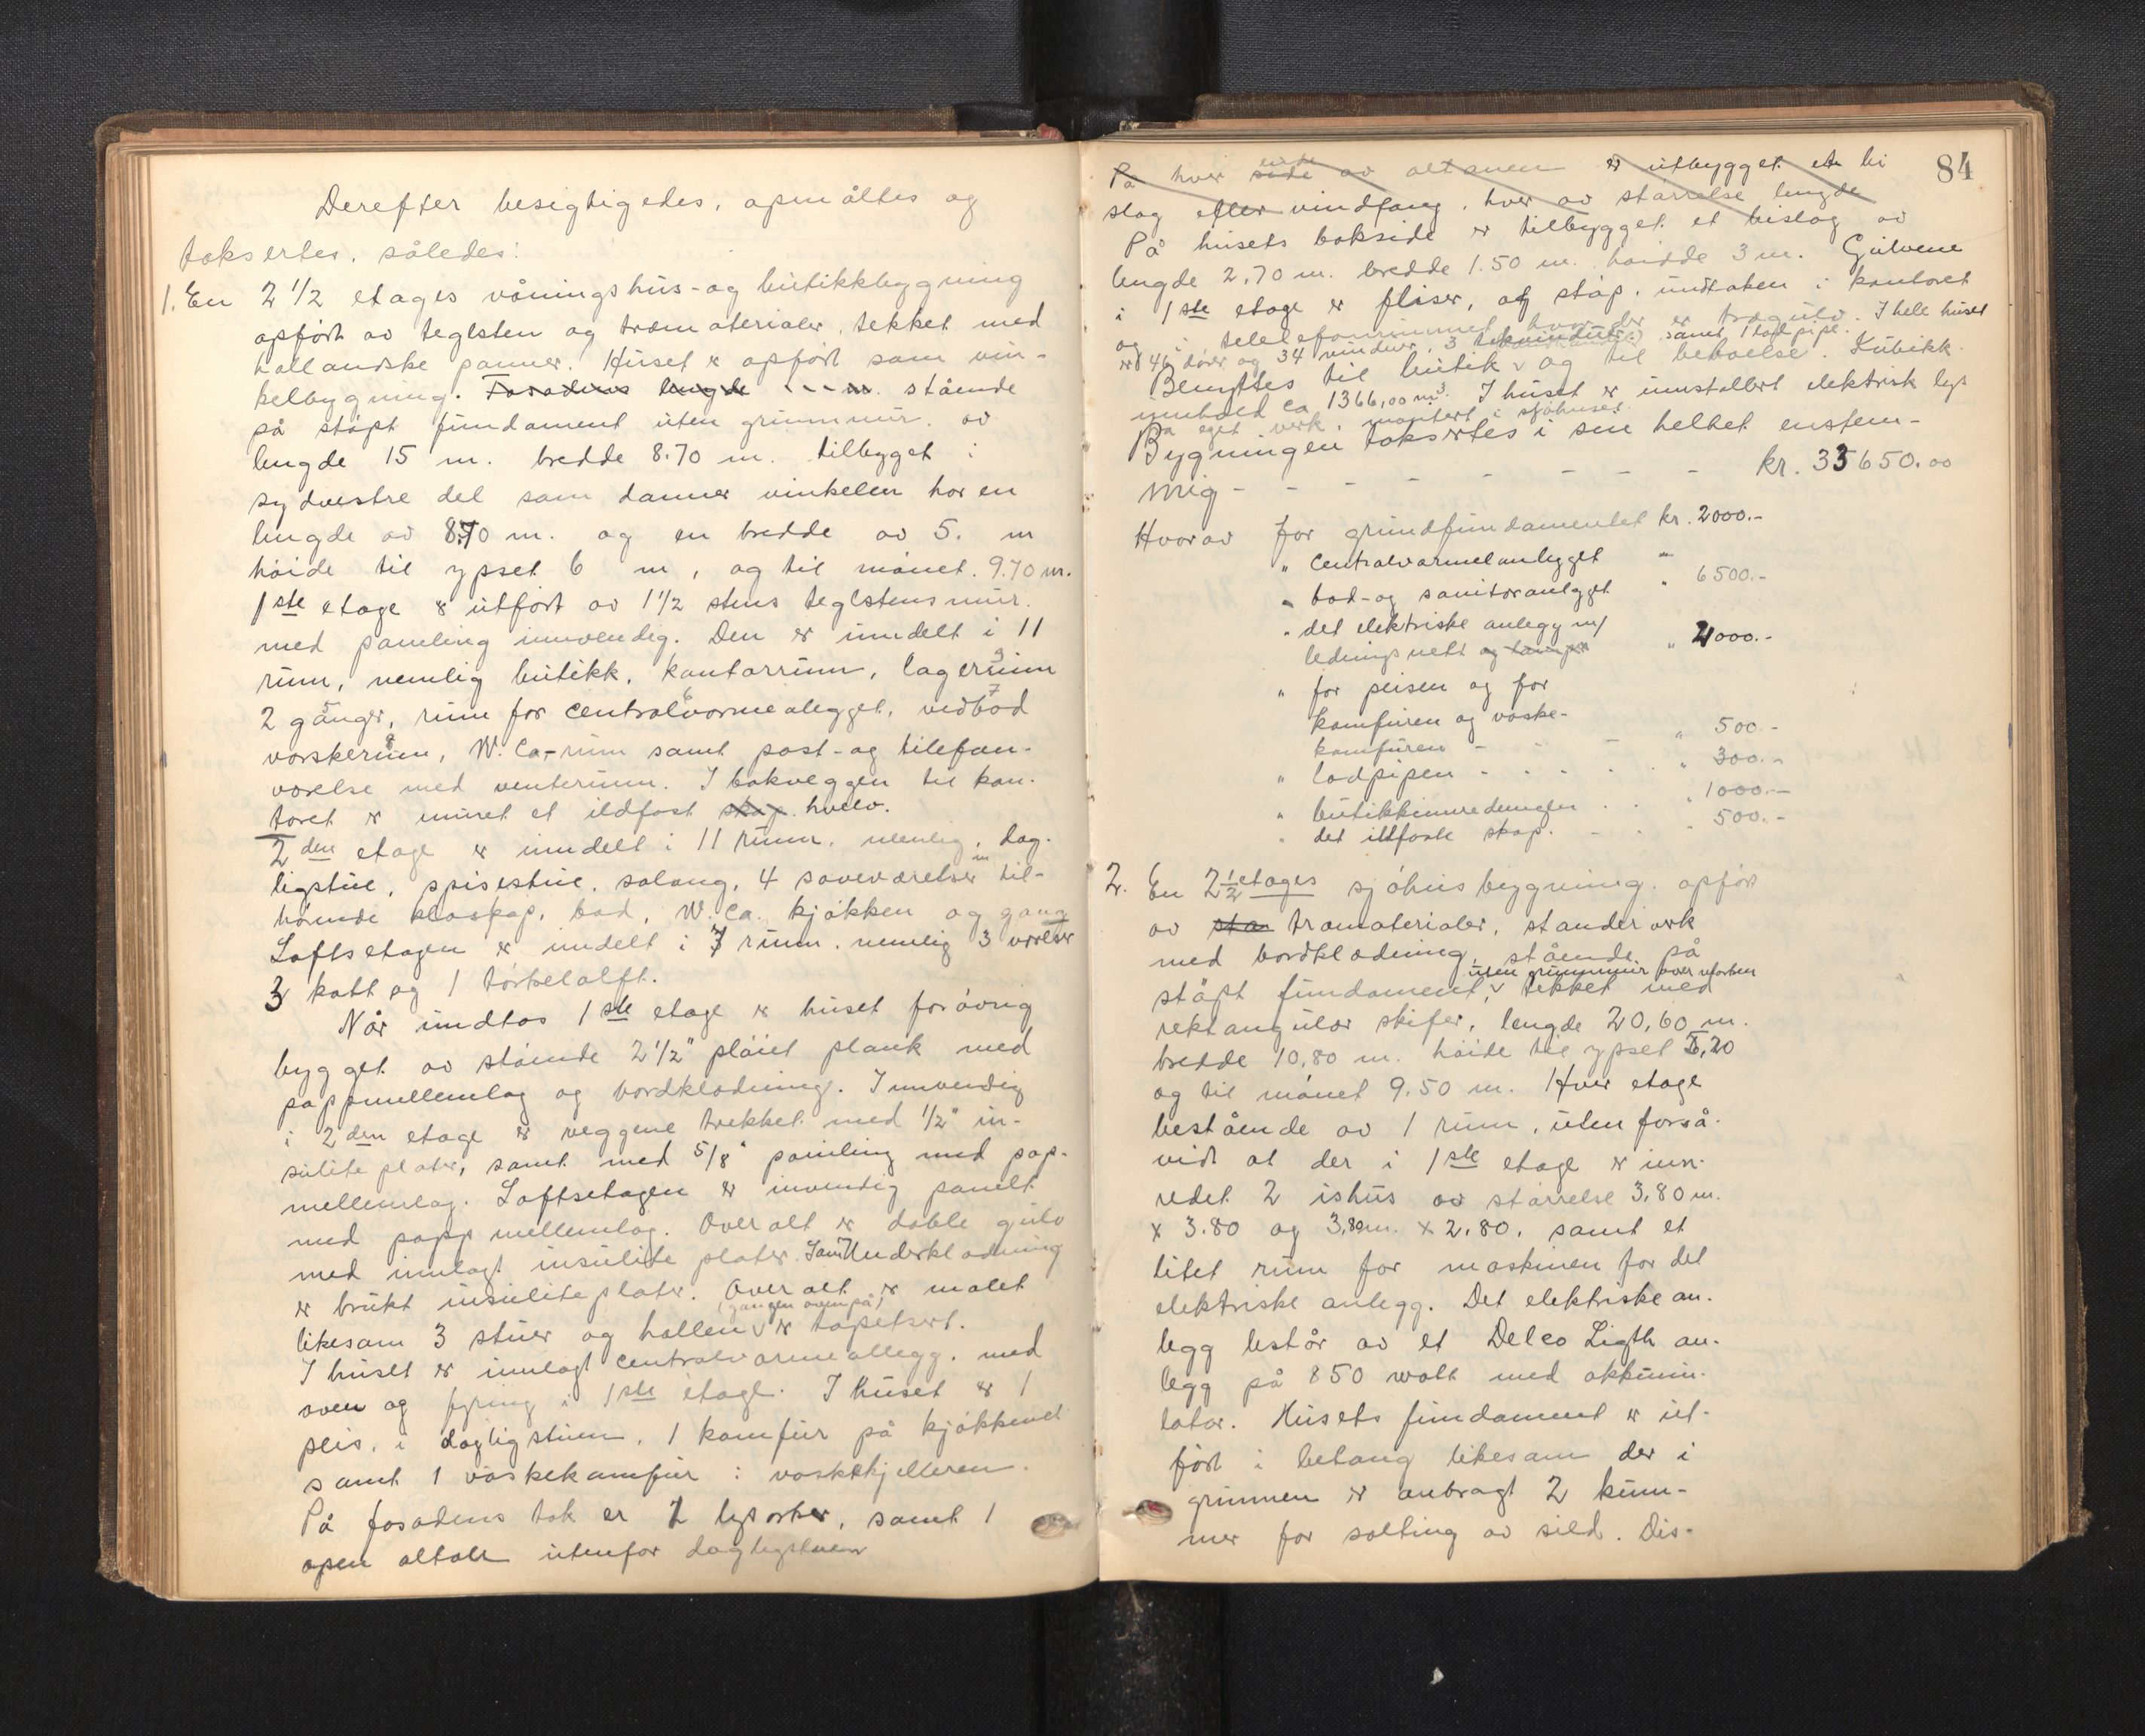 Derefter besigtigedes, opmåltes og
taksertes, således:
1. En 2 1/2 etages våningshus- og butikkbygning
opført av teglsten og træmaterialer, tekket med
hollandske panner. Huset er opført som vin-
kelbygning. Fasadens lengde - - - m. stående
på støpt fundament uten grunnmur, av
lengde 15 m. bredde 8.70 m. tilbygget i
sydvestre del som danner vinkelen har en
lengde av 8.70 m. og en bredde av 5. m
høide til ypset 6 m, og til mønet. 9.70 m.
1ste etage er utført av 1 1/2 stens teglstensmur.
med paneling innvendig. Den er inndelt i 11
rum, nemlig butikk, kontorrum, lagerrum
2 ganger, rum for centralvarmealegget, vedbod
vaskerum, W.Ca-rum samt post- og tilefon-
værelse med venterum. I bakveggen til kon-
toret er muret et ildfast skap. hvelv.
2den etage er inndelt i 11 rum, nemlig, dag-
ligstue, spisestue, salong, 4 soveværelser m til-
hørende kleskap, bad, W.Ca. kjøkken og gang
Loftsetagen er inndelt i 7 rum. nemlig 3 værelser
3 kott og 1 tørkeloft.
Når undtas 1ste etage er huset forøvrig
bygget av stående 2 1/2" pløiet plank med
pappmellemlag og bordklædning. Innvendig
i 2den etage er veggene trekket med 1/2" in-
sulite plater, samt med 5/8" panling med pap-
mellemlag. Loftsetagen er invendig panelt
med papp mellemlag. Overalt er doble gulv
med innlagt insulite plater. Som Underklædning
er brukt insuliteplater. Overalt er malet
(gangen ovenpå)
likesom 3 stuer og hallen v er tapetsert.
I huset er innlagt centralvarmeallegg. med
oven og fyring i 1ste etage. I huset er 1
peis, i dagligstuen, 1 komfur på kjøkkenet
samt 1 vaskekomfur i vaskekjelleren.
På fasadens tak er 1 lysarker, samt 1
open altan utenfor dagligstuen
84
På hver side ende av altanen er utbygget et bi
slag eller vindfang, hver av størrelse lengde
På husets bakside er tilbygget et bislag av
lengde 2,70 m. bredde 1.50 m. høidde 3 m. Gulvene
i 1ste etage er fliser, og støp, undtaken i kontoret
og i telelefonrummet hvor der er trægulv. I hele huset
er 46 dører og 34 vinduer, 3 takvinduer samt 1 lodpipe.
Benyttes til butik v og til beboelse. Kubikk-
innhold ca 1366,00 m3. I huset er innstallert elektrisk lys
fra eget verk, montert i sjøhuset.
Bygningen taksertes i sin helhet enstem-
mig - - - - - - - kr. 33650.00
Hvorav for grundfundamentet kr. 2000.-
" centralvarmeanlegget "
" bad- og sanitæranlegget " 6500.-
" det elektriske anlegg m/
ledningsnett og lamper " 2000.-
" for peisen og for
komfuren og vaske-
komfuren - - - " 500.-
" lodpipen - - - - " 300.-
" butikkinnredningen . . " 1000.-
" det ildfaste skap. - - " 500.-
2. En 2 1/2 etages sjøhusbygning. opført
av sta træmaterialer, standerverk
med bordklædning, stående på
uten grunnmur over
støpt fundament, v tekket med
rektangulær skifer, lengde 20,60 m.
bredde 10,80 m. høide til ypset 5,20
og til mønet 9.50 m. Hver etage
bestående av 1 rum, uten forså-
vidt at der i 1ste etage er inn-
redet 2 ishus av størrelse 3,80 m.
x 3.80 og 3,80m. x 2.80, samt et
litet rum for maskinen for det
elektriske anlegg. Det elektriske an-
legg består av et Delco Ligth an-
legg på 850 watt med akkumu-
lator. Husets fundament er ut-
ført i betong likesom der i
grunnen er anbragt 2 kum-
mer for salting av sild. Dis-